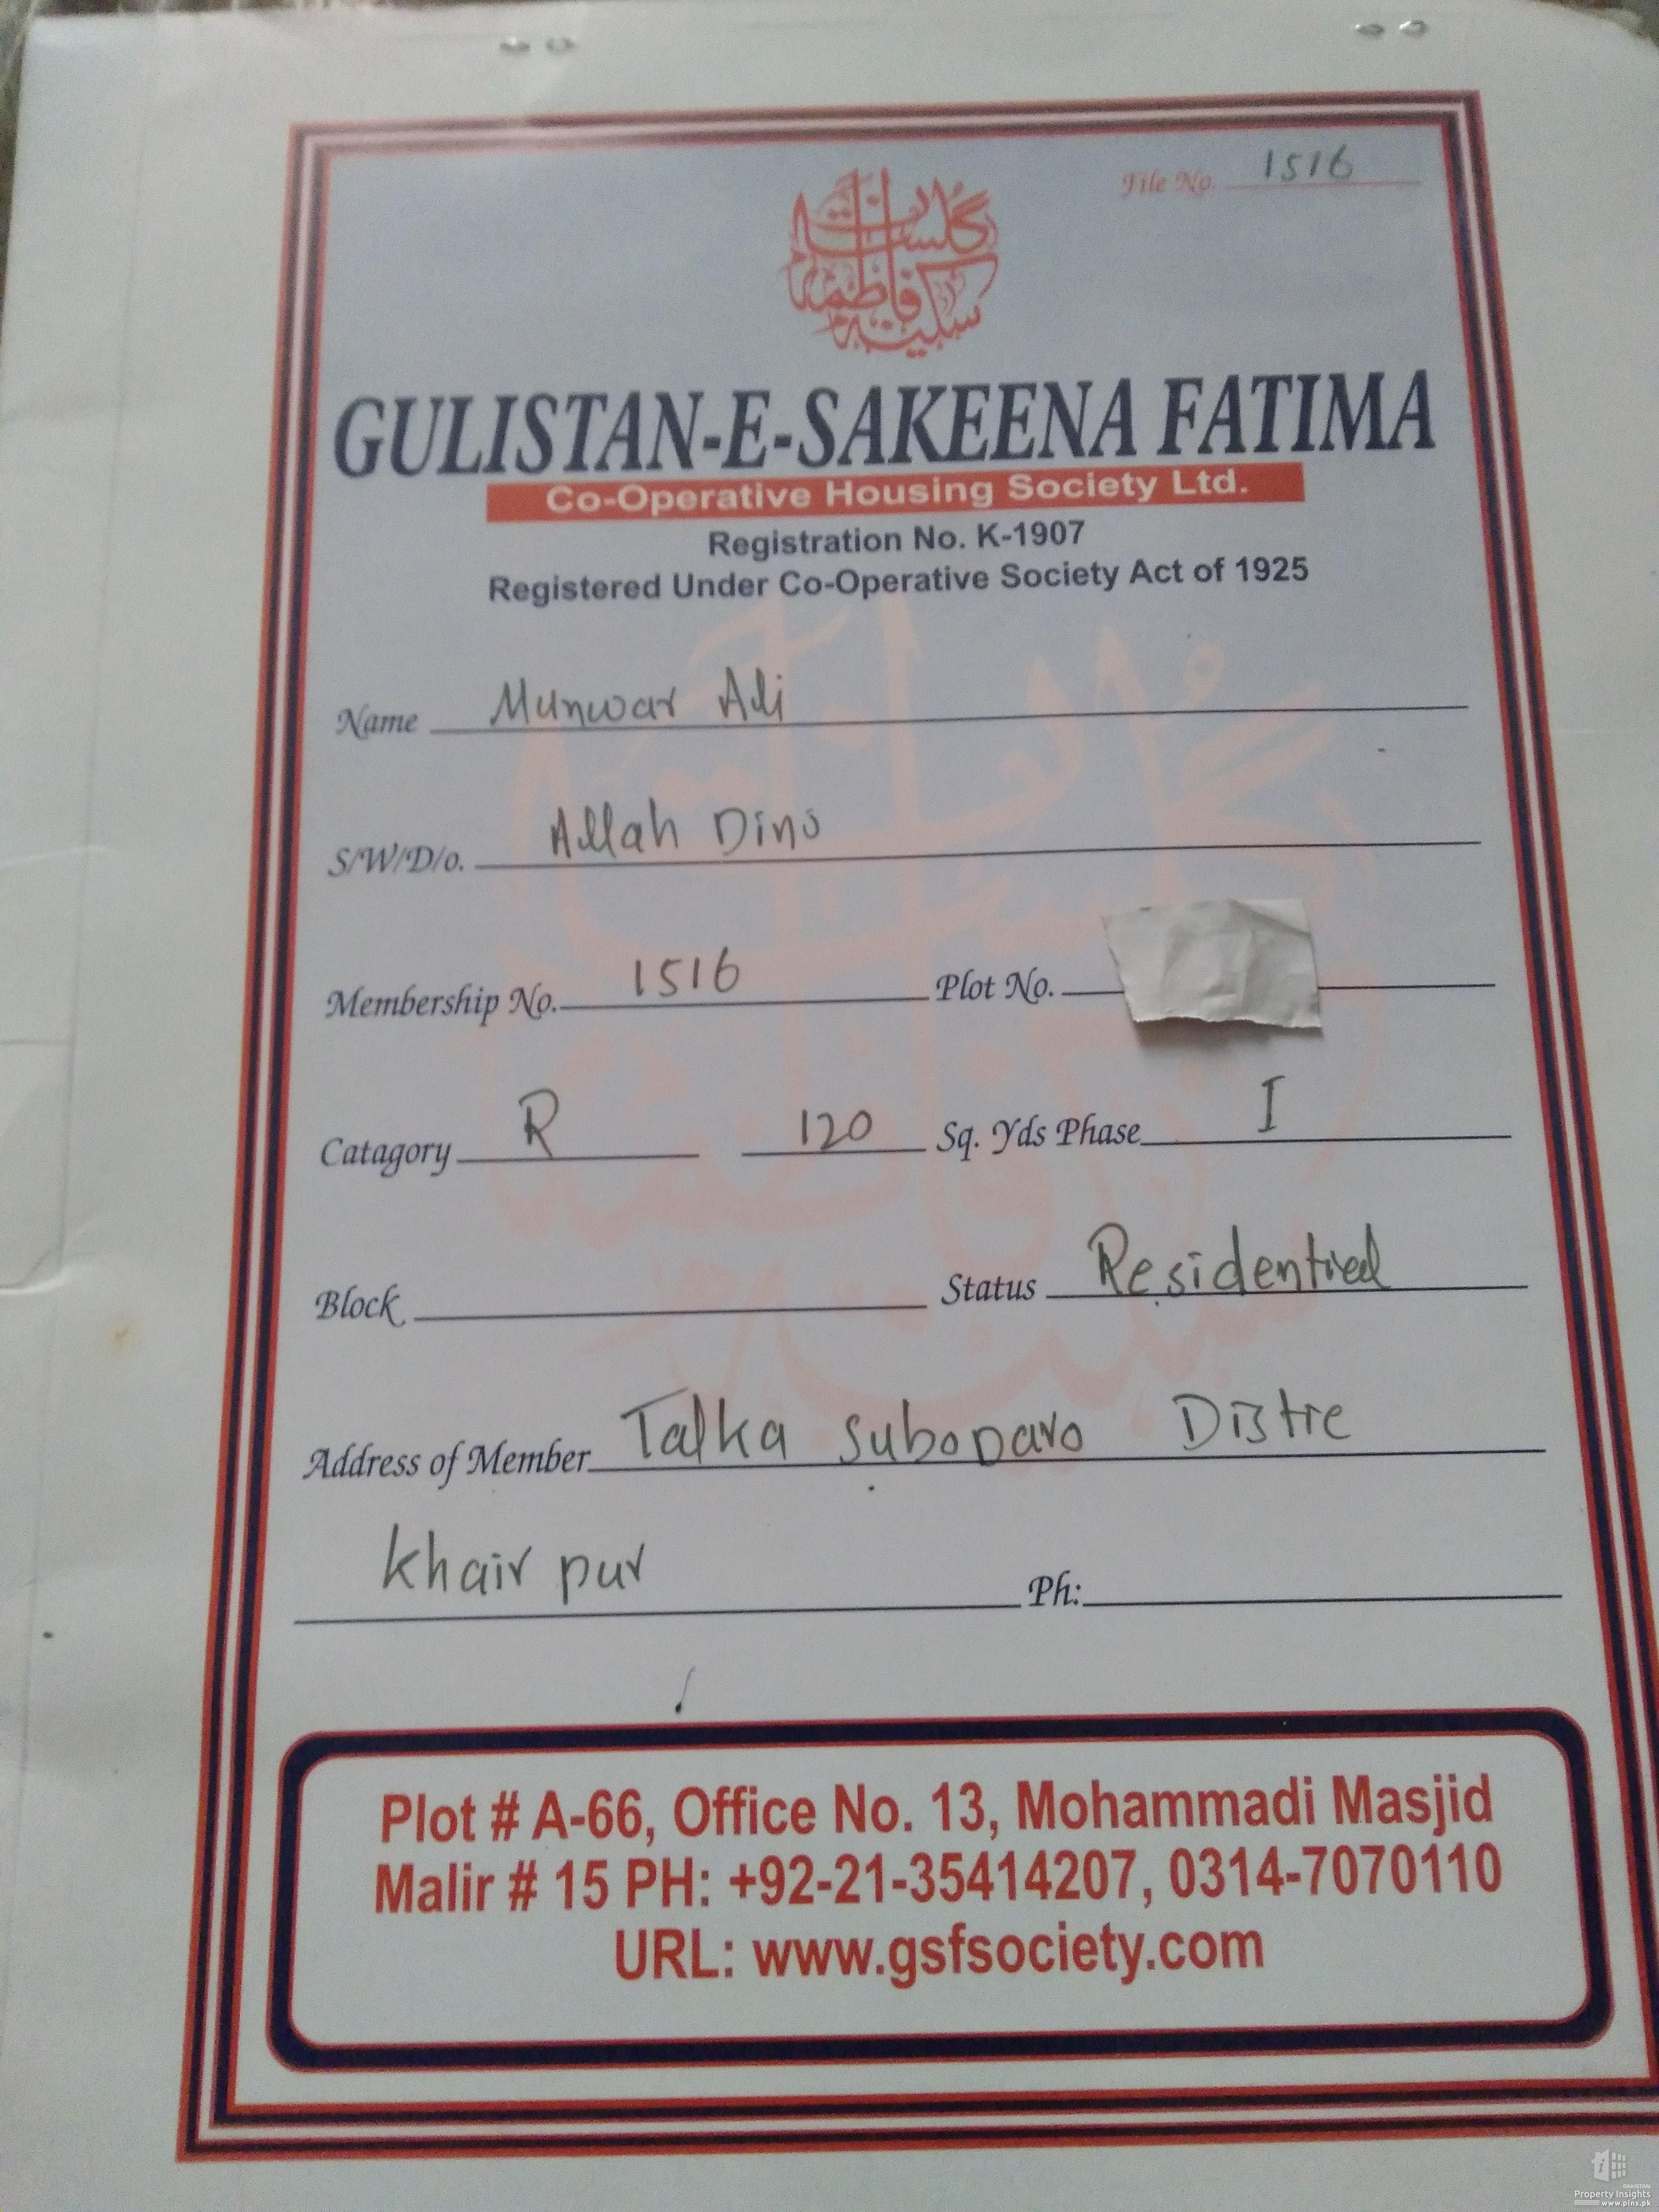 File No. 1516
گلستان
فاطمہ
سکینہ
GULISTAN-E-SAKEENA FATIMA
Co-Operative Housing Society Ltd.
Registration No. K-1907
Registered Under Co-Operative Society Act of 1925
Name Munwar Ali
S/W/D/o. Allah Dino
Membership No. 1516 Plot No.
Catagory R 120 Sq. Yds Phase I
Block Status Residential
Address of Member Talka Subodaro Distrc
Khair pur Ph:
Plot # A-66, Office No. 13, Mohammadi Masjid
Malir # 15 PH: +92-21-35414207, 0314-7070110
URL: www.gsfsociety.com
PAKISTAN
Property Insights
www.pins.pk